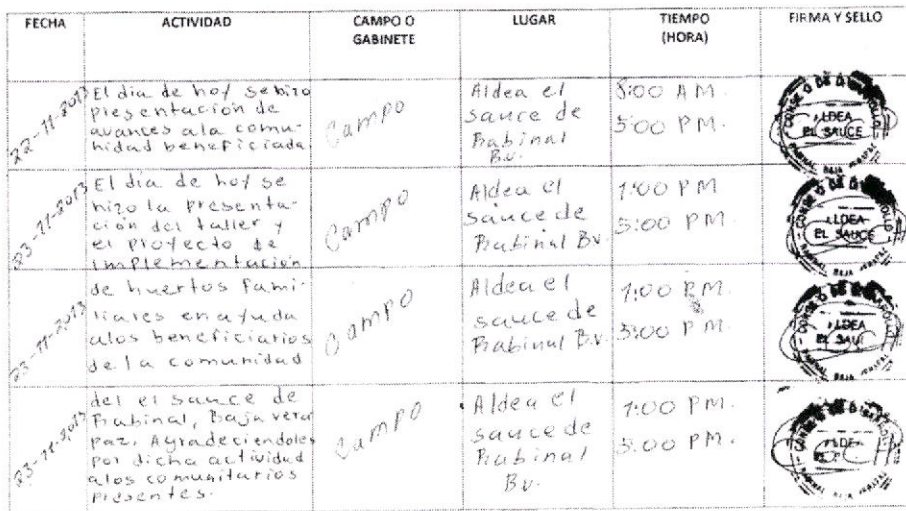 FECHA ACTIVIDAD CAMPO O GABINETE LUGAR TIEMPO (HORA) FIRMA Y SELLO
22-11-2013
El dia de hoy se hizo
presentación de
avances a la comu-
nidad beneficiada
Campo
Aldea el
sauce de
Rabinal
B.v.
8:00 AM.
5:00 PM.
ALDEA
EL SAUCE
23-11-2013
El dia de hoy se
hizo la presenta-
ción del taller y
el proyecto de
implementación
Campo
Aldea el
sauce de
Rabinal Bv.
1:00 PM
5:00 PM.
ALDEA
EL SAUCE
23-11-2013
de huertos fami-
liares en ayuda
alos beneficiarios
de la comunidad
Campo
Aldea el
sauce de
Rabinal B.v.
1:00 P.M.
5:00 P.M.
ALDEA
23-11-2013
del el sauce de
Rabinal, Baja vera
paz. Agradeciendoles
por dicha actividad
alos comunitarios
presentes.
Campo
Aldea el
sauce de
Rabinal
Bv.
1:00 PM.
5:00 PM.